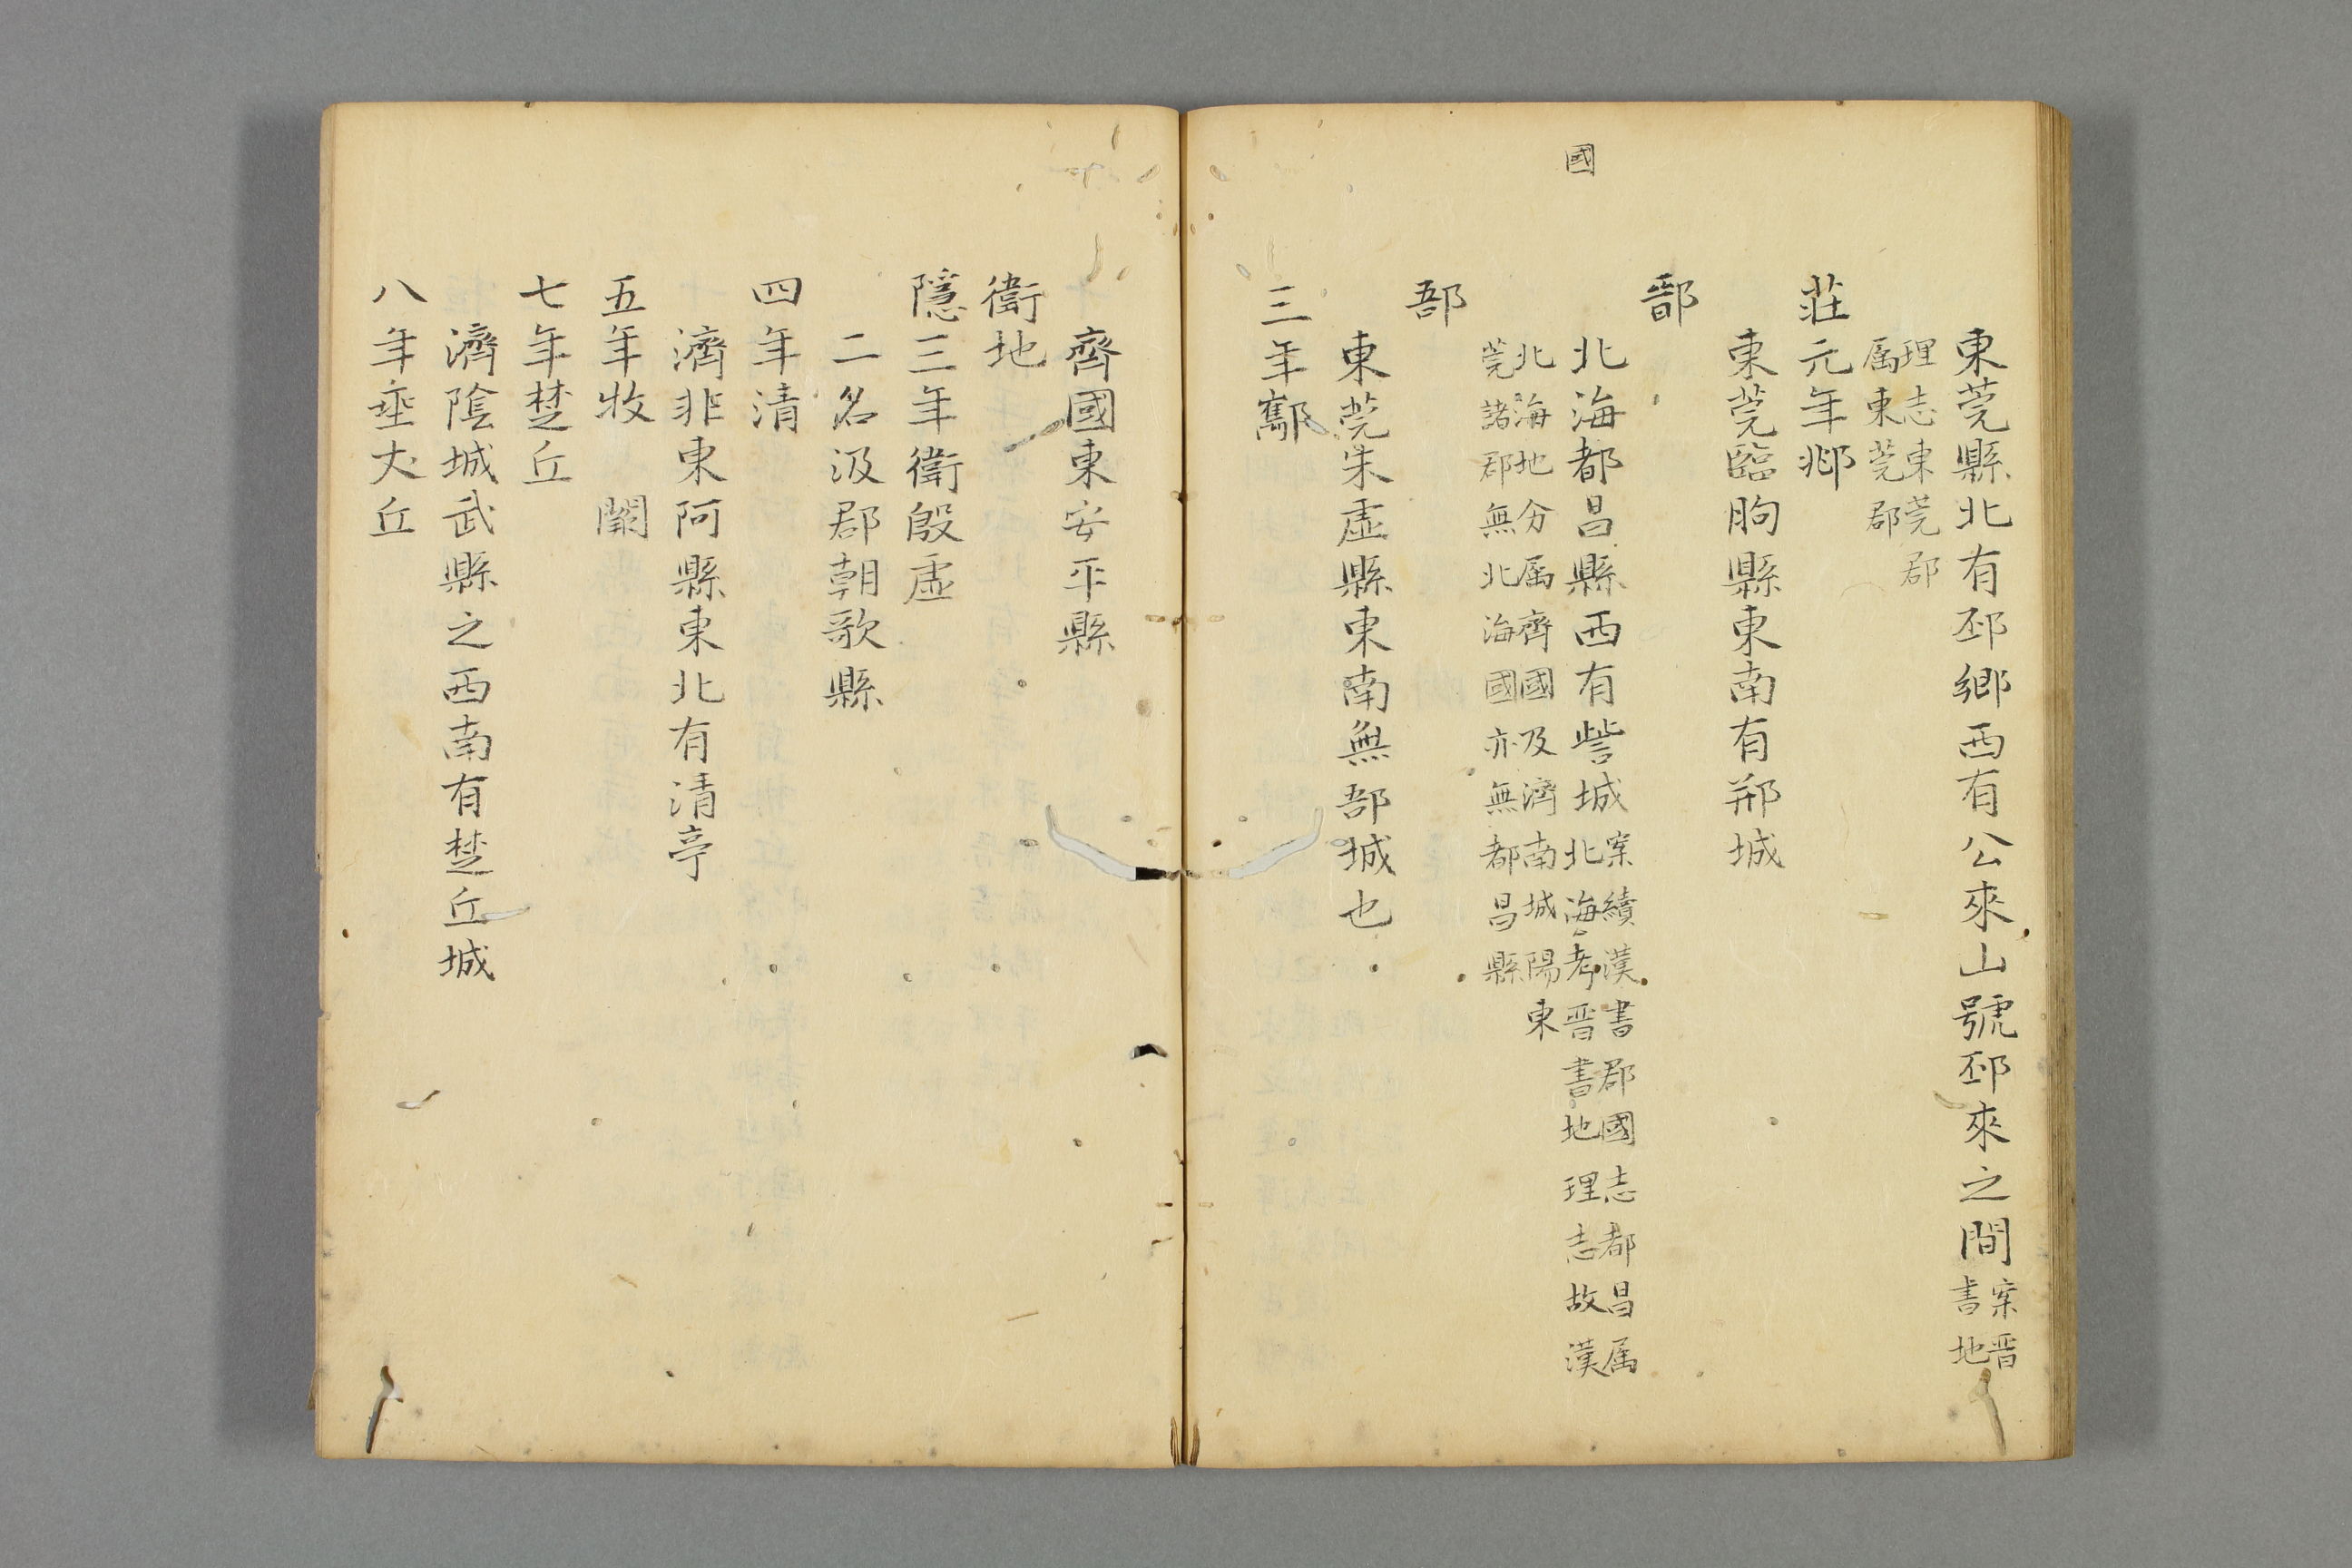 國
東莞縣北有邳鄉西有公來山號邳來之間案晋
書地
理志東莞郡
属東莞郡
莊元年郱
東莞臨朐縣東南有郱城
鄑
北海都昌縣西有訾城案續漢書郡國志都昌属
北海考晋書地理志故漢
北海地分属齊國及濟南城陽東
莞諸郡無北海國亦無都昌縣
郚
東莞朱虛縣東南無郚城也
三年酅
齊國東安平縣
衛地
隱三年衛殷虛
二名汲郡朝歌縣
四年清
濟非東阿縣東北有清亭
五年牧 闕
七年楚丘
濟陰城武縣之西南有楚丘城
八年垂犬丘